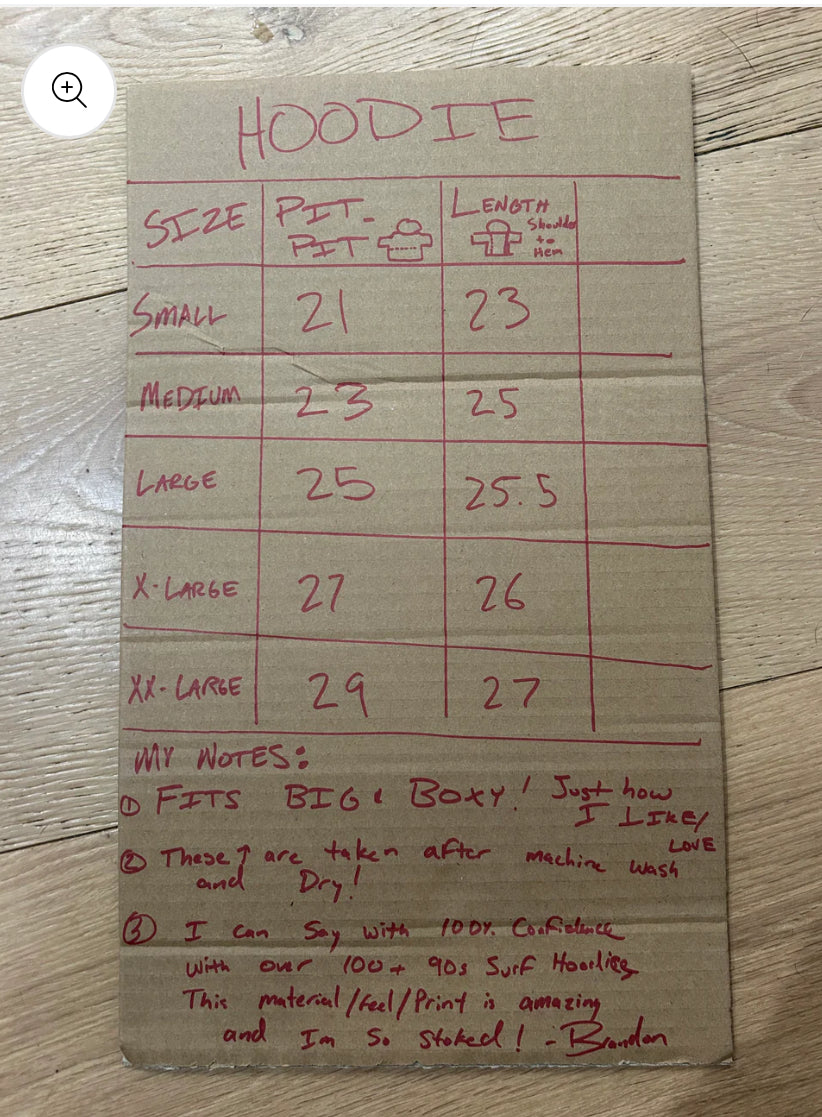 HOODIE
SIZE PIT- PIT LENGTH Shoulder to Hem
SMALL 21 23
MEDIUM 23 25
LARGE 25 25.5
X-LARGE 27 26
XX-LARGE 29 27
MY NOTES:
① FITS BIG & BOXY! Just how
I LIKE/
LOVE
② These ↑ are taken after machine wash
and Dry!
③ I can Say with 100% Confidence
with over 100+ 90s Surf Hoodies
This material/feel/Print is amazing
and Im So Stoked! - Brandon